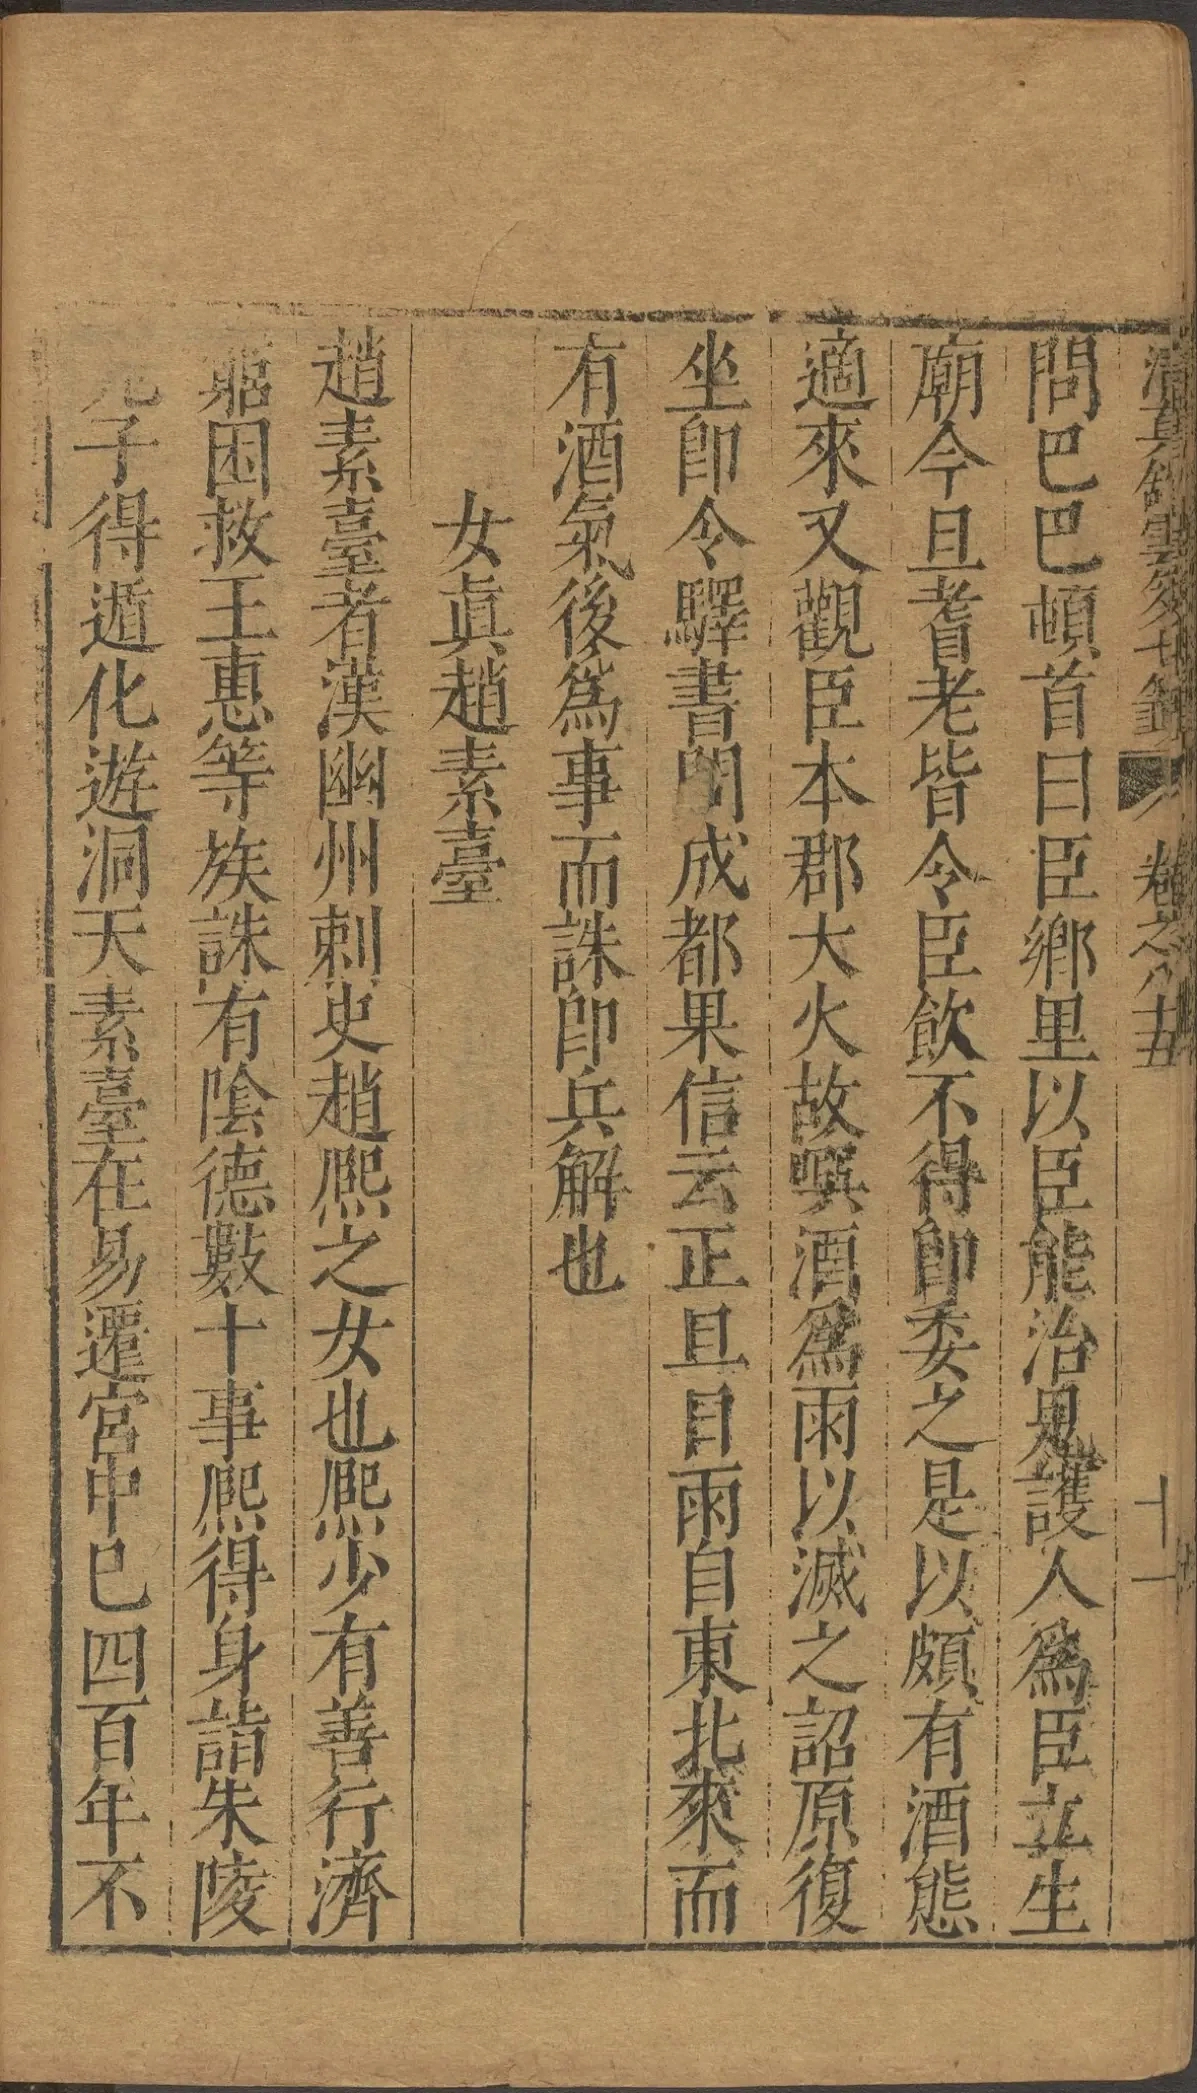 清真館雲笈七籤 卷之八十五 十一
問巴巴頓首曰臣鄉里以臣能治鬼護人爲臣立生
廟今旦耆老皆令臣飲不得卽委之是以頗有酒態
適來又觀臣本郡大火故噀酒爲雨以滅之詔原復
坐卽令驛書問成都果信云正旦日雨自東北來而
有酒氣後爲事而誅卽兵解也
女眞趙素臺
趙素臺者漢幽州刺史趙熈之女也熈少有善行濟
窮困救王惠等族誅有陰德數十事熈得身詣朱陵
兒子得遁化遊洞天素臺在易遷宮中已四百年不